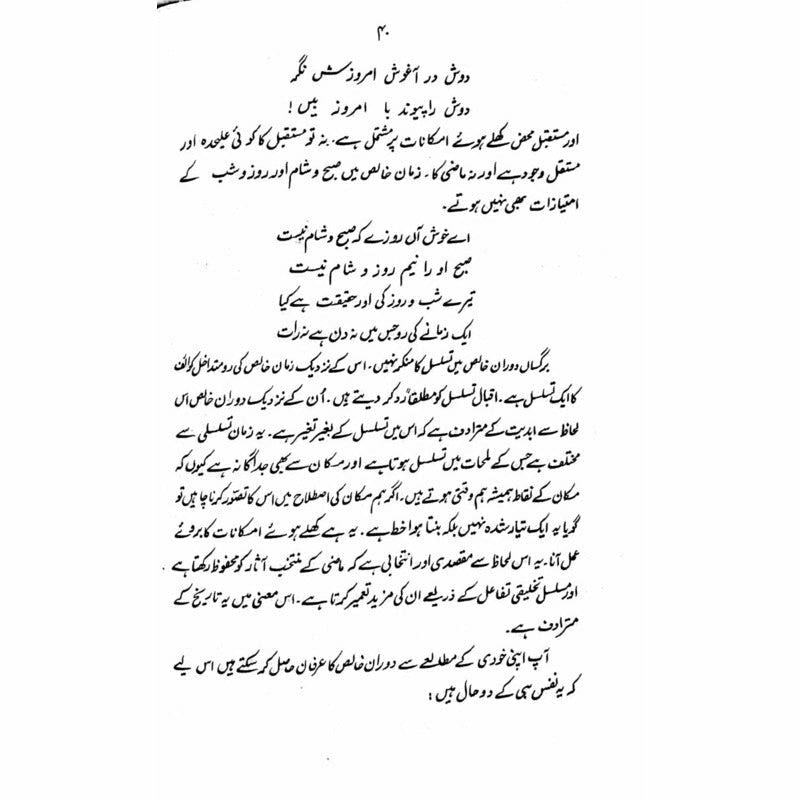 ۴۰
دوش در آغوش امروزش نگر
دوش را پیوند با امروز بیں!
اور مستقبل محض کھلے ہوئے امکانات پر مشتمل ہے۔ نہ تو مستقبل کا کوئی علیحدہ اور
مستقل وجود ہے اور نہ ماضی کا۔ زمان خالص میں صبح و شام اور روز و شب کے
امتیازات بھی نہیں ہوتے۔
اے خوش آں روزے کہ صبح و شام نیست
صبح او را نیم روز و شام نیست
تیرے شب و روز کی اور حقیقت ہے کیا
ایک زمانے کی رو جس میں نہ دن ہے نہ رات
برگساں دوران خالص میں تسلسل کا منکر نہیں۔ اس کے نزدیک زمان خالص کی رو متداخل کوائف
کا ایک تسلسل ہے۔ اقبال تسلسل کو مطلقاً رد کر دیتے ہیں۔ اُن کے نزدیک دوران خالص اس
لحاظ سے ابدیت کے مترادف ہے کہ اس میں تسلسل کے بغیر تغیر ہے۔ یہ زمان تسلسلی سے
مختلف ہے جس کے لمحات میں تسلسل ہوتا ہے اور مکان سے بھی جداگانہ ہے کیوں کہ
مکان کے نقاط ہمیشہ ہم وقتی ہوتے ہیں۔ اگر ہم مکان کی اصطلاح میں اس کا تصوّر کرنا چاہیں تو
گویا یہ ایک تیار شدہ نہیں بلکہ بنتا ہوا خط ہے۔ یہ ہے کھلے ہوئے امکانات کا بروئے
عمل آنا۔ یہ اس لحاظ سے مقصدی اور انتخابی ہے کہ ماضی کے منتخب آثار کو محفوظ رکھتا ہے
اور مسلسل تخلیقی تفاعل کے ذریعے ان کی مزید تعمیر کرتا ہے۔ اس معنی میں یہ تاریخ کے
مترادف ہے۔
آپ اپنی خودی کے مطالعے سے دوران خالص کا عرفان حاصل کر سکتے ہیں اس لیے
کہ یہ نفس ہی کے دو حال ہیں: